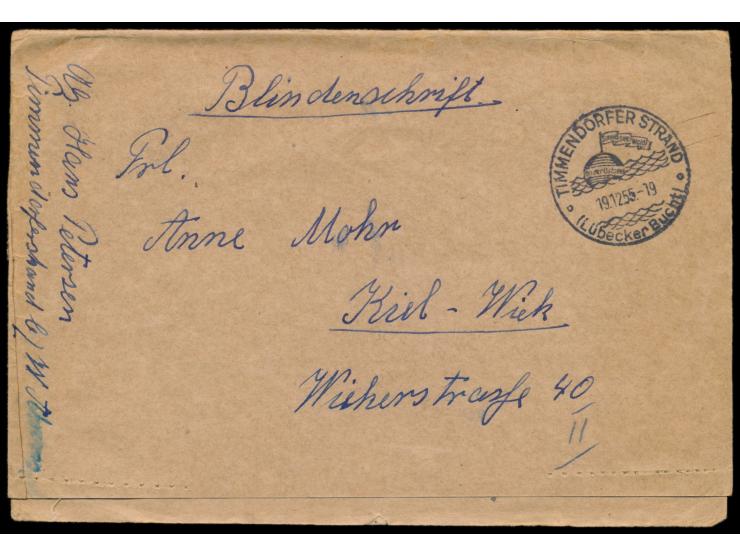 Blindenschrift
Frl.
Anne Mohr
Kiel - Wiek
Wikerstrasse 40
II
Hans Petersen
Timmendorferstrand b/
TIMMENDORFER STRAND
19.12.55.-19
(Lübecker Bucht)